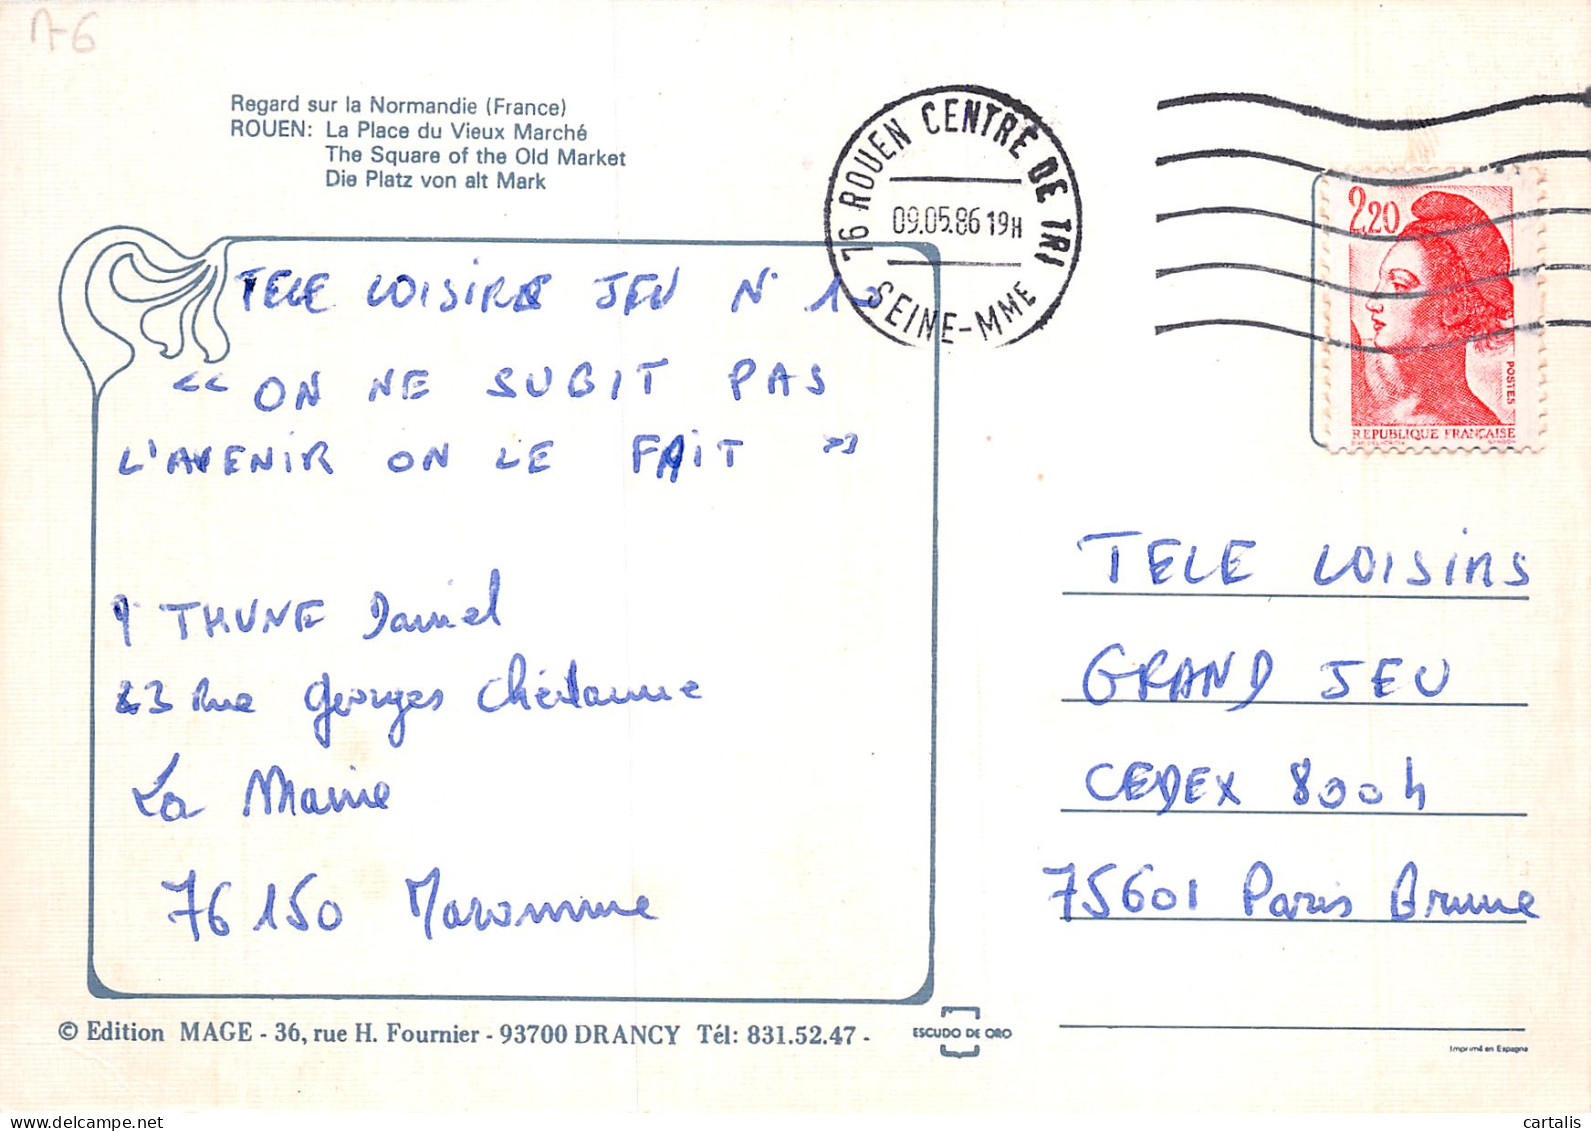 A6
Regard sur la Normandie (France)
ROUEN: La Place du Vieux Marché
The Square of the Old Market
Die Platz von alt Mark
76 ROUEN CENTRE DE TRI
09.05.86 19H
SEINE-MME
2,20
POSTES
REPUBLIQUE FRANÇAISE
TELE LOISIRS JEU N° 10
« ON NE SUBIT PAS
L'AVENIR ON LE FAIT »
THUNE Daniel
23 Rue Georges
La Maine
76150 Maromme
TELE LOISIRS
GRAND JEU
CEDEX 8004
75601 Paris Brune
© Edition MAGE - 36, rue H. Fournier - 93700 DRANCY Tél: 831.52.47 -
ESCUDO DE ORO
Imprimé en Espagne
cartalis
delcampe.net